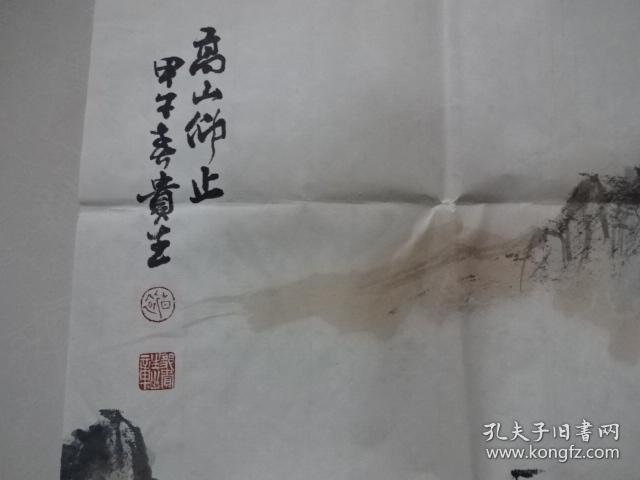 高山仰止
甲午春貴生
孔夫子旧书网
www.kongfz.com